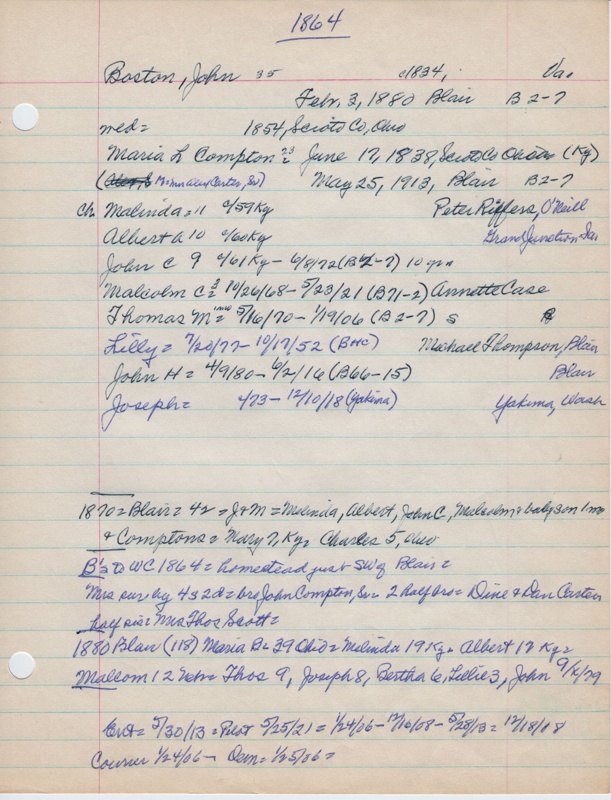 1864
Boston, John 35 c1834, Va.
Feb. 3, 1880 Blair B 2-7
med= 1854, Scioto Co, Ohio
Maria L Compton = June 17, 1838, Scioto Co Ohio (Ky)
(Mrs Alex Carter, Sr) May 25, 1913, Blair B2-7
Ch Malinda = 11 c/59 Ky Peter Riffers, O'Neill
Albert A 10 c/60 Ky Grand Junction Ia
John C 9 c/61 Ky - 6/8/72 (B 2-7) 10 yr
Malcolm C = 10/26/68 - 5/23/21 (B71-2) Annette Case
Thomas M = 5/16/70 - 1/19/06 (B2-7) s
Lilly = 7/20/77 - 10/17/52 (BHC) Michael Thompson, Blair
John H = 4/9/80 - 6/2/16 (B66-15) Blair
Joseph = 4/73 - 12/10/18 (Yakima) Yakima, Wash
1870 = Blair = 42 = J & M = Malinda, Albert, John C, Malcolm & baby son 1 mo
& Comptons = Mary 7, Ky = Charles 5, Ohio
B's to WC 1864 = homestead just SW of Blair =
Mrs sur by 4s 2d = bro John Compton, Sr = 2 half bro = Dine & Dan Carter
half sis = Mrs Thos Scott =
1880 Blair (118) Maria B = 39 Ohio = Melinda 19 Ky = Albert 17 Ky =
Malcom 12 Neb = Thos 9, Joseph 8, Bertha 6, Lillie 3, John 9/12/79
Ent = 5/30/13 = Pilot 5/25/21 = 1/24/06 - 12/16/08 - 5/28/13 = 12/18/18
Courier 1/24/06 - Dem = 1/25/06 =